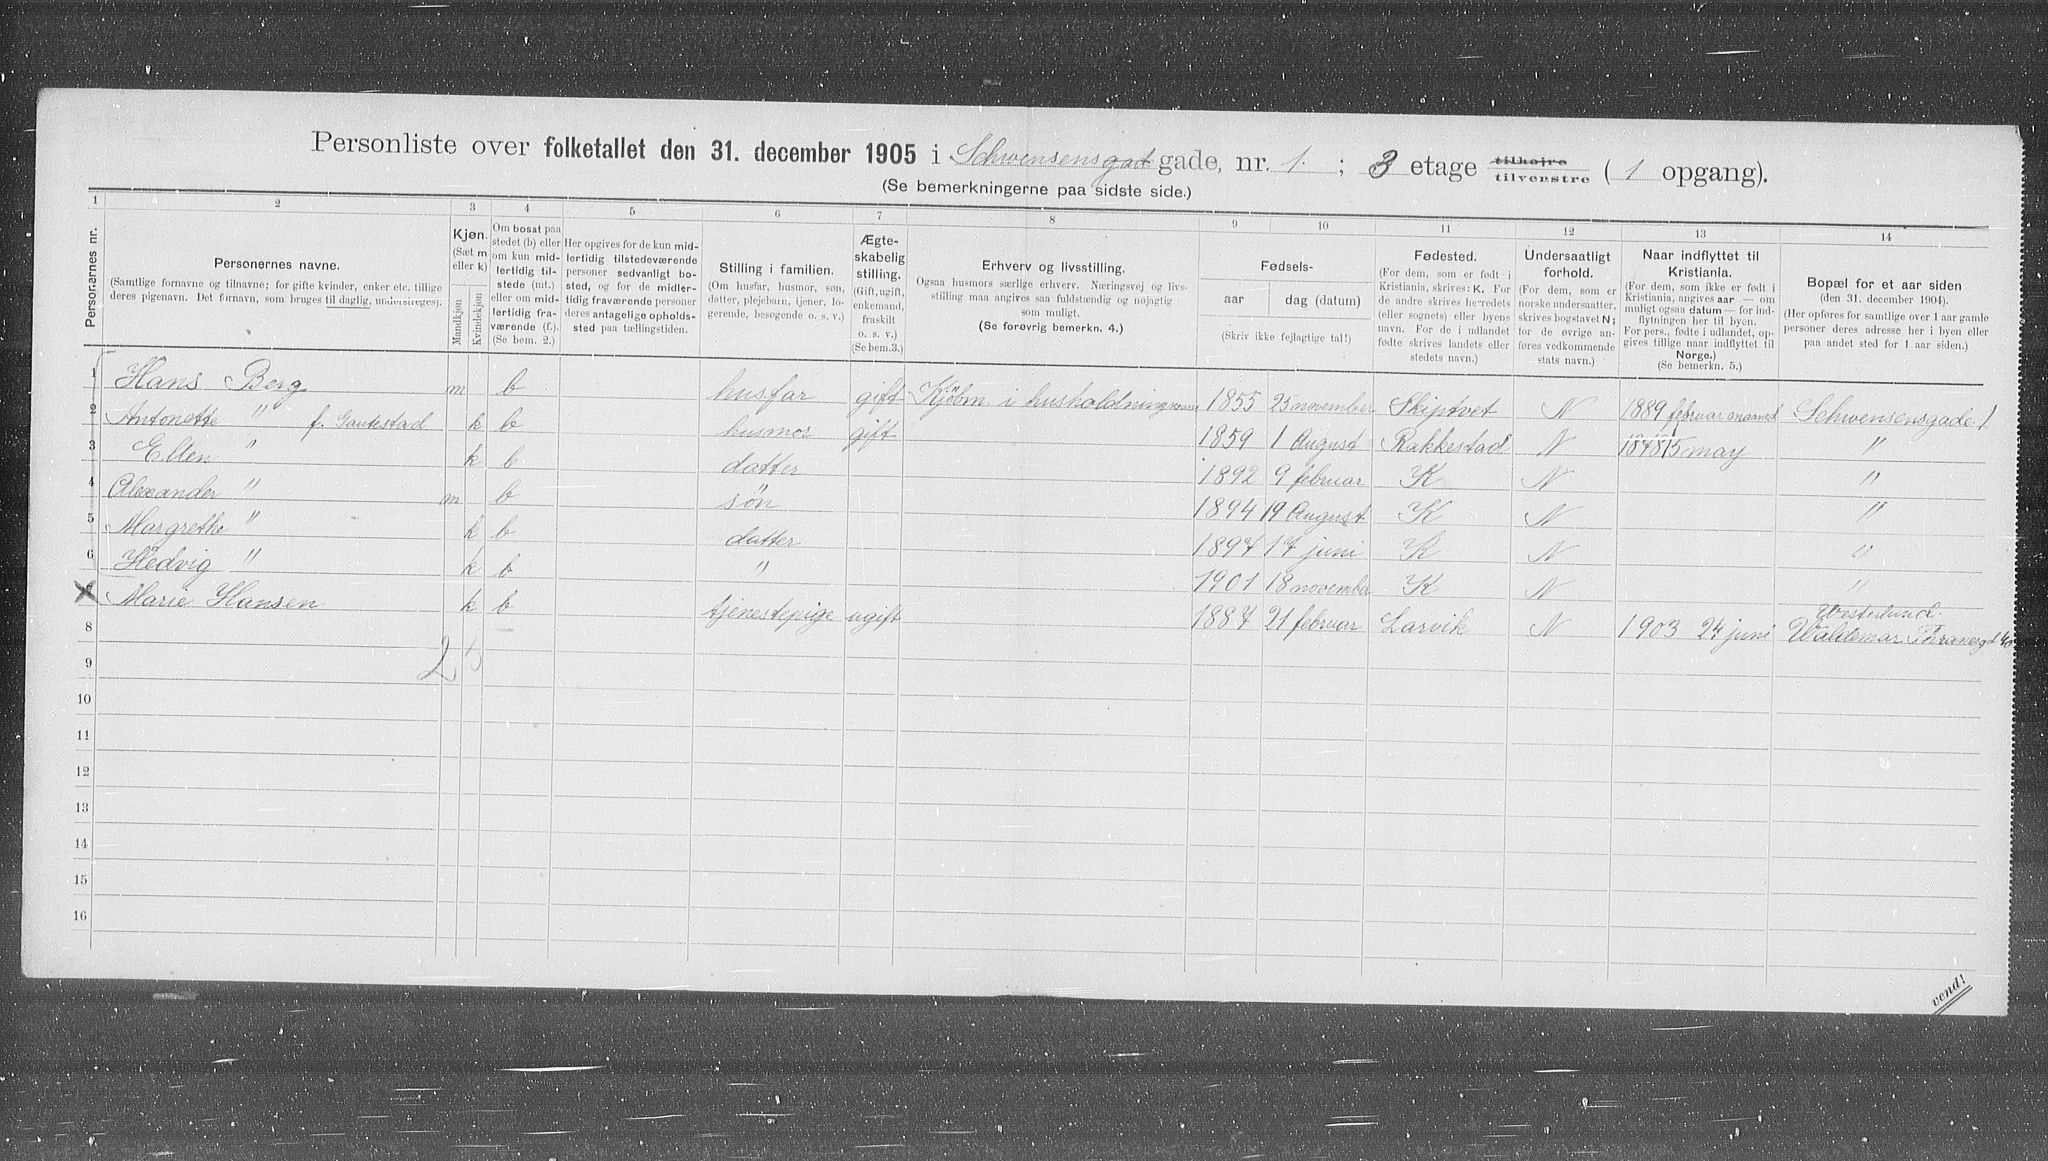 Personliste over folketallet den 31. december 1905 i Schwensensgade gade, nr. 1. ; 3 etage tilhøjre tilvenstre ( 1 opgang).
(Se bemerkningerne paa sidste side.)
1 2 3 4 5 6 7 8 9 10 11 12 13 14
Personernes nr.
Personernes navne.
(Samtlige fornavne og tilnavne; for gifte kvinder, enker etc. tillige
deres pigenavn. Det fornavn, som bruges til daglig, understreges).
Kjøn.
(Sæt m
eller k)
Mandkjøn
Kvindekjøn
Om bosat paa
stedet (b) eller
om kun mid-
lertidig til-
stede (mt.)
eller om mid-
lertidig fra-
værende (f.).
(Se bem. 2.)
Her opgives for de kun mid-
lertidig tilstedeværende
personer sedvanligt bo-
sted, og for de midler-
tidig fraværende personer
deres antagelige opholds-
sted paa tællingstiden.
Stilling i familien.
(Om husfar, husmor, søn,
datter, plejebarn, tjener, lo-
gerende, besøgende o. s. v.)
Ægte-
skabelig
stilling.
(Gift, ugift,
enkemand,
fraskilt
o. s. v.)
(Se bem.3.)
Erhverv og livsstilling.
Ogsaa husmors særlige erhverv. Næringsvej og livs-
stilling maa angives saa fuldstændig og nøjagtig
som muligt.
(Se forøvrig bemerkn. 4.)
Fødsels-
aar
dag (datum)
(Skriv ikke fejlagtige tal!)
Fødested.
(For dem, som er født i
Kristiania, skrives: K. For
de andre skrives herredets
(eller sognets) eller byens
navn. For de i udlandet
fødte skrives landets eller
stedets navn.)
Undersaatligt
forhold.
(For dem, som er
norske undersaatter,
skrives bogstavet N;
for de øvrige an-
føres vedkommende
stats navn.)
Naar indflyttet til
Kristiania.
(For dem, som ikke er født i
Kristiania, angives aar — om
muligt ogsaa datum — for ind-
flytningen her til byen.
For pers., fødte i udlandet, op-
gives tillige naar indflyttet til
Norge.)
(Se bemerkn. 5.)
Bopæl for et aar siden
(den 31. december 1904).
(Her opføres for samtlige over 1 aar gamle
personer deres adresse her i byen eller
paa andet sted for 1 aar siden.)
1 Hans Berg m b husfar gift Kjöbm. i husholdningsvarer 1855 25 november Skiptvet N 1889 februar maaned Schwensensgade 1
2 Antonette " f. Gautestad k b husmor gift 1859 1 August Rakkestad N 1878 15 may "
3 Ellen " k b datter 1892 9 februar K N "
4 Alexander " m b søn 1894 19 August K N "
5 Margrethe " k b datter 1897 17 juni K N "
6 Hedvig " k b " 1901 18 november K N "
Westerlund.
Marie Hansen k b tjenestepige ugift 1887 21 februar Larvik N 1903 24 juni Waldemar Thranesgd 40
8
2 5
9
10
11
12
13
14
15
16
vend!